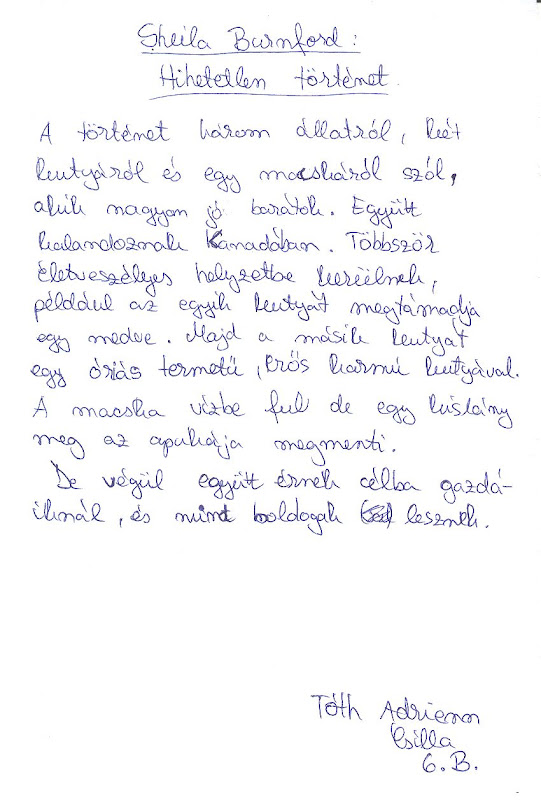 Sheila Burnford:
Hihetetlen történet
A történet három állatról, két
kutyáról és egy macskáról szól,
akik nagyon jó barátok. Együtt
kalandoznak Kanadában. Többször
életveszélyes helyzetbe kerülnek,
például az egyik kutyát megtámadja
egy medve. Majd a másik kutyát
egy óriás termetű, erős karmú kutyával.
A macska vízbe ful de egy kislány
meg az apukája megmenti.
De végül együtt érnek célba gazdá-
iknál, és mind boldogak lesznek.
Tóth Adrienn
Csilla
6.B.